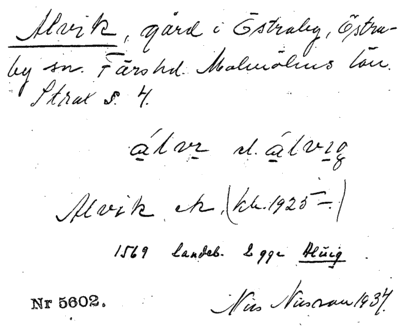 Alvik, gård i Östraby, Östra-
by sn. Färs hd. Malmöhus län.
Strax s. 4.
álvı d. álvıg
Alvik ek. (kb. 1925-.)
1569 Landeb. Egge Aluig
Nr 5602. Nils Nilsson 1937.